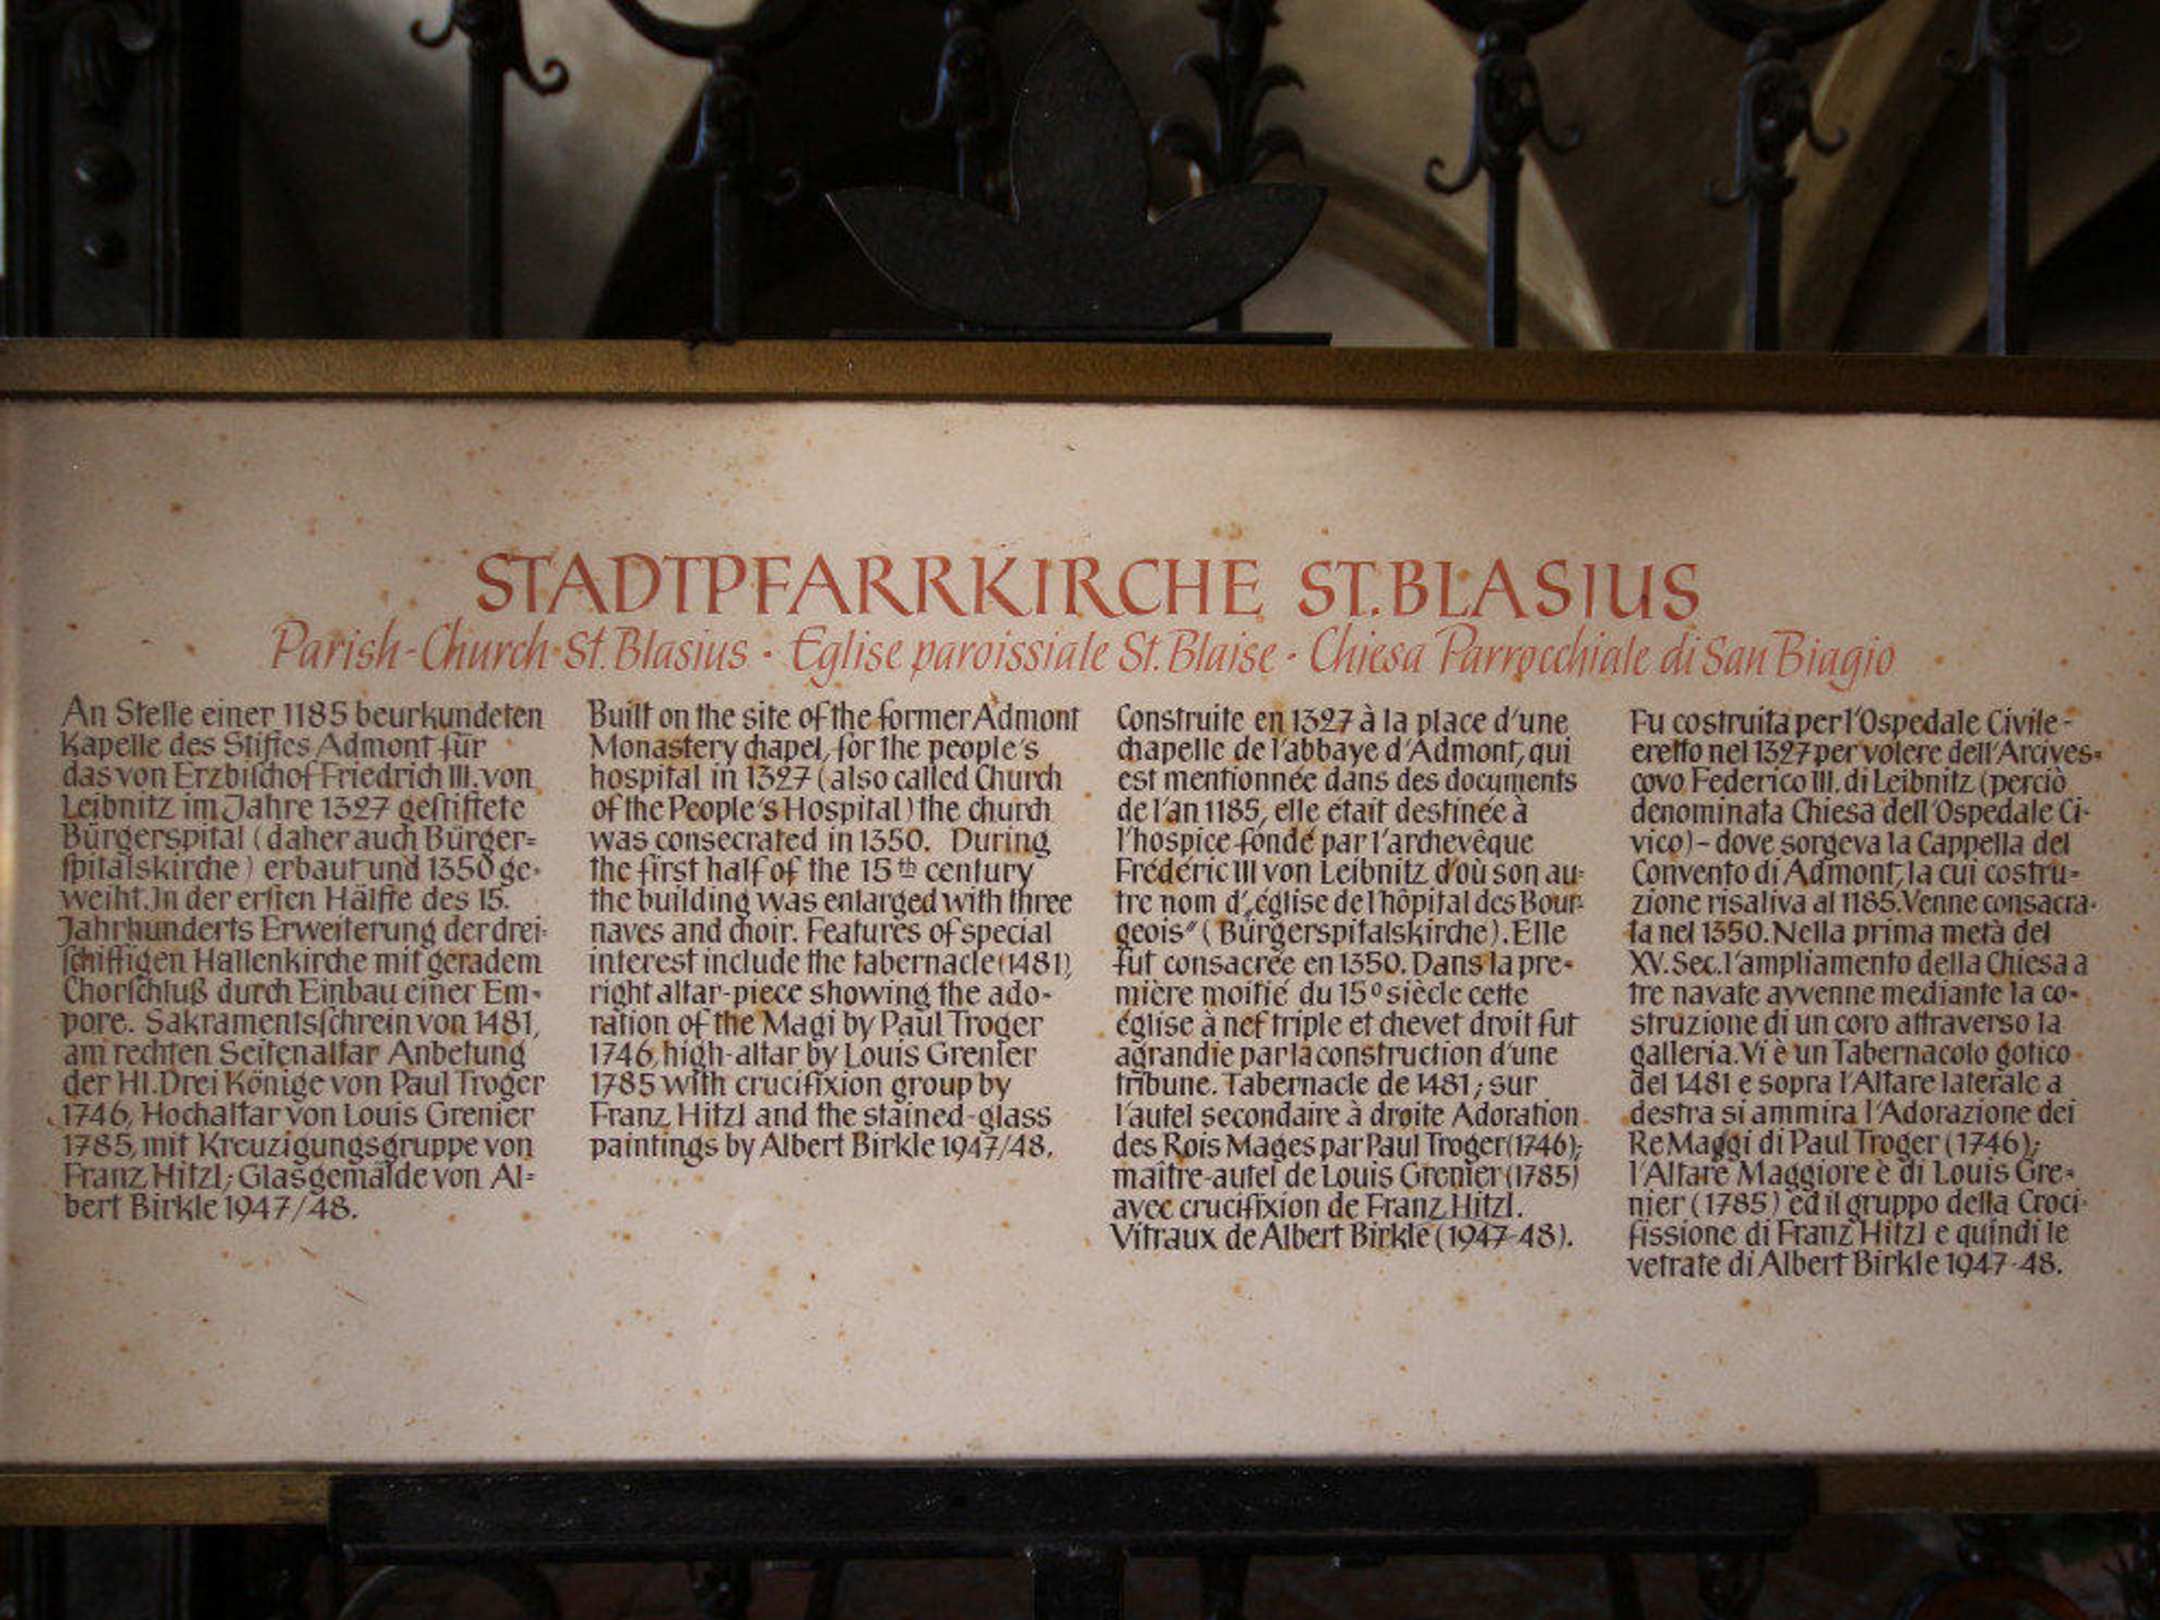 STADTPFARRKIRCHE ST. BLASIUS
Parish-Church St. Blasius · Eglise paroissiale St. Blaise · Chiesa Parrocchiale di San Biagio
An Stelle einer 1185 beurkundeten
Kapelle des Stiftes Admont für
das von Erzbiſchof Friedrich III. von
Leibnitz im Jahre 1327 geſtiftete
Bürgerspital (daher auch Bürger=
ſpitalskirche) erbaut und 1350 ge-
weiht. In der erſten Hälfte des 15.
Jahrhunderts Erweiterung der drei-
ſchiffigen Hallenkirche mit geradem
Chorſchluß durch Einbau einer Em-
pore. Sakramentsſchrein von 1481,
am rechten Seitenaltar Anbetung
der Hl. Drei Könige von Paul Troger
1746, Hochaltar von Louis Grenier
1785, mit Kreuzigungsgruppe von
Franz Hitzl; Glasgemälde von Al=
bert Birkle 1947/48.
Built on the site of the former Admont
Monastery chapel, for the people's
hospital in 1327 (also called Church
of the People's Hospital) the church
was consecrated in 1350. During
the first half of the 15th century
the building was enlarged with three
naves and choir. Features of special
interest include the tabernacle (1481),
right altar-piece showing the ado-
ration of the Magi by Paul Troger
1746, high-altar by Louis Grenier
1785 with crucifixion group by
Franz Hitzl and the stained-glass
paintings by Albert Birkle 1947/48.
Construite en 1327 à la place d'une
chapelle de l'abbaye d'Admont, qui
est mentionnée dans des documents
de l'an 1185, elle était destinée à
l'hospice fondé par l'archevêque
Frédéric III von Leibnitz d'où son au=
tre nom d'„église de l'hôpital des Bour-
geois" (Bürgerspitalskirche). Elle
fut consacrée en 1350. Dans la pre-
mière moitié du 15º siècle cette
église à nef triple et chevet droit fut
agrandie par la construction d'une
tribune. Tabernacle de 1481; sur
l'autel secondaire à droite Adoration
des Rois Mages par Paul Troger (1746);
maître-autel de Louis Grenier (1785)
avec crucifixion de Franz Hitzl.
Vitraux de Albert Birkle (1947-48).
Fu costruita per l'Ospedale Civile -
eretto nel 1327 per volere dell'Arcives=
covo Federico III. di Leibnitz (perciò
denominata Chiesa dell'Ospedale Ci-
vico) - dove sorgeva la Cappella del
Convento di Admont, la cui costru-
zione risaliva al 1185. Venne consacra-
ta nel 1350. Nella prima metà del
XV. Sec. l'ampliamento della Chiesa a
tre navate avvenne mediante la co-
struzione di un coro attraverso la
galleria. Vi è un Tabernacolo gotico
del 1481 e sopra l'Altare laterale a
destra si ammira l'Adorazione dei
Re Maggi di Paul Troger (1746);
l'Altare Maggiore è di Louis Gre-
nier (1785) ed il gruppo della Croci-
fissione di Franz Hitzl e quindi le
vetrate di Albert Birkle 1947-48.